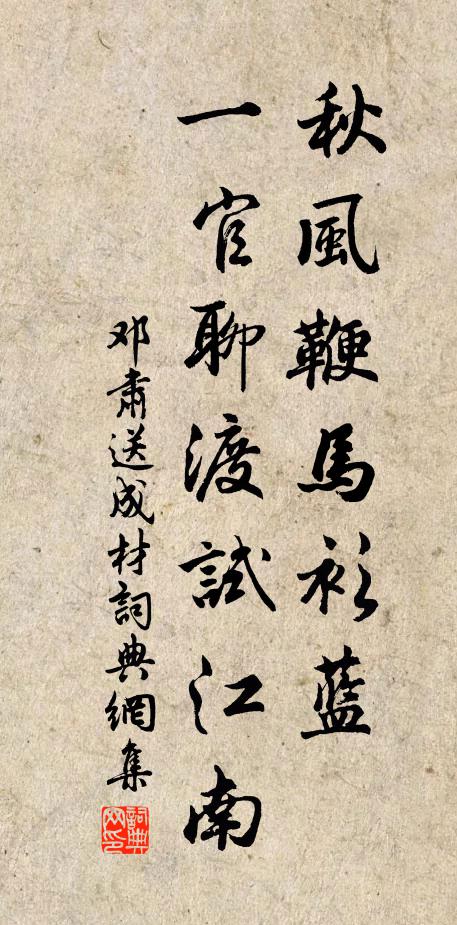 秋風鞭馬衫藍
一官聊渡試江南
邓肅送成材詞典網集
詞典網印